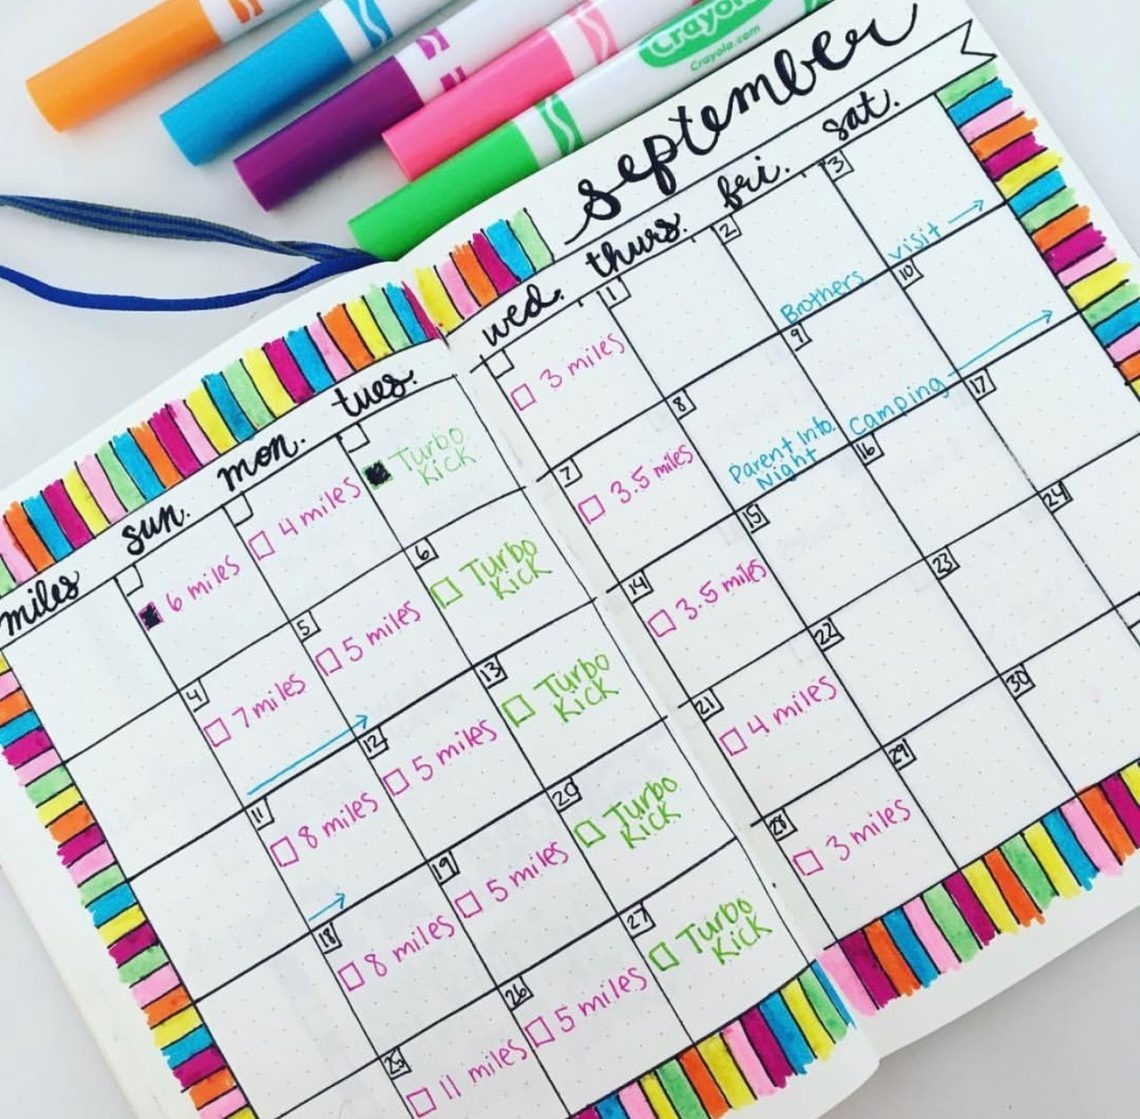 Crayola
Crayola.com
september
miles sun. mon. tues. wed. thurs. fri. sat.
6 miles
4 miles
Turbo
Kick
3 miles
1
2
Brothers
3
visit
4
7 miles
5
5 miles
6
Turbo
Kick
7
3.5 miles
8
Parent Info.
Night
9
Camping
10
11
8 miles
12
5 miles
13
Turbo
Kick
14
3.5 miles
15
16
17
18
8 miles
19
5 miles
20
Turbo
Kick
21
4 miles
22
23
24
25
11 miles
26
5 miles
27
Turbo
Kick
28
3 miles
29
30